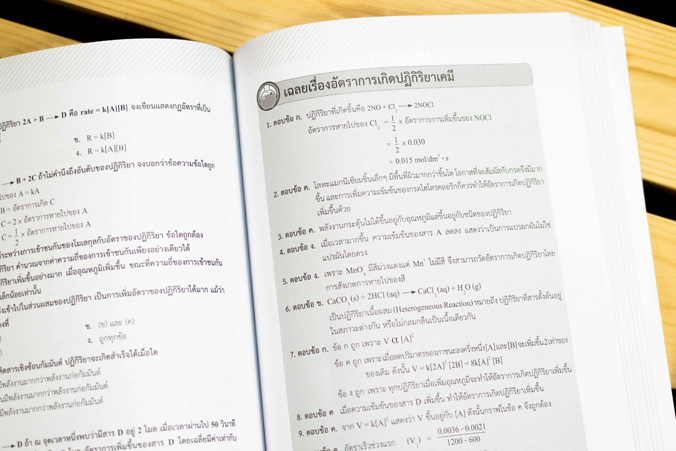 ปฏิกิริยา 2A + B ⟶ D คือ rate = k[A][B] จงเขียนแสดงกฎอัตราที่เป็น
ข. R = k[B]
ง. R = k[A][B]
⟶ B + 2C ถ้าไม่คำนึงถึงอันดับของปฏิกิริยา จงบอกว่าข้อความข้อใดถูก
ไปของ A = kA
B = อัตราการเกิด C
C = 2 × อัตราการหายไปของ A
C = 1/2 × อัตราการหายไปของ A
ระหว่างการเข้าชนกันของโมเลกุลกับอัตราของปฏิกิริยา ข้อใดถูกต้อง
กิริยา คำนวณจากค่าความถี่ของการเข้าชนกันเพียงอย่างเดียวได้
กิริยาเพิ่มขึ้นอย่างมาก เมื่ออุณหภูมิเพิ่มขึ้น ขณะที่ความถี่ของการเข้าชนกัน
เล็กน้อยเท่านั้น
เข้าไปในส่วนผสมของปฏิกิริยา เป็นการเพิ่มอัตราของปฏิกิริยาได้มาก แม้ว่า
งที่
ข. (ข) และ (ค)
ง. ถูกทุกข้อ
คิดสารเชิงซ้อนกัมมันต์ ปฏิกิริยาจะเกิดสำเร็จได้เมื่อใด
มีพลังงานมากกว่าพลังงานก่อกัมมันต์
นมีพลังงานมากกว่าพลังงานก่อกัมมันต์
มีพลังงานมากกว่าพลังงานก่อกัมมันต์
⟶ D ถ้า ณ จุดเวลาหนึ่งพบว่ามีสาร D อยู่ 2 โมล เมื่อเวลาผ่านไป 50 วินาที
โมล อัตราการเพิ่มขึ้นของสาร D โดยเฉลี่ยมีค่าเท่ากับ
เฉลยเรื่องอัตราการเกิดปฏิกิริยาเคมี
1. ตอบข้อ ก. ปฏิกิริยาที่เกิดขึ้นคือ 2NO + Cl₂ ⟶ 2NOCl
อัตราการหายไปของ Cl₂ = 1/2 × อัตราการการเพิ่มขึ้นของ NOCl
= 1/2 × 0.030
= 0.015 mol/dm³ · s
2. ตอบข้อ ค. โลหะแมกนีเซียมชิ้นเล็กๆ มีพื้นที่ผิวมากกว่าชิ้นโต โอกาสที่จะสัมผัสกับกรดจึงมีมาก
ขึ้น และการเพิ่มความเข้มข้นของกรดไฮโดรคลอริกก็ควรทำให้อัตราการเกิดปฏิกิริยา
เพิ่มขึ้นด้วย
3. ตอบข้อ ค. พลังงานกระตุ้นไม่ได้ขึ้นอยู่กับอุณหภูมิแต่ขึ้นอยู่กับชนิดของปฏิกิริยา
4. ตอบข้อ ง. เมื่อเวลามากขึ้น ความเข้มข้นของสาร A ลดลง แสดงว่าเป็นการแปรผันไม่ใช่
แปรผันโดยตรง
5. ตอบข้อ ง. เพราะ MnO₄⁻ มีสีม่วงแดงแต่ Mn⁺ ไม่มีสี จึงสามารถวัดอัตราการเกิดปฏิกิริยาโดย
การสังเกตการหายไปของสี
6. ตอบข้อ ข. CaCO₃(s) + 2HCl (aq) ⟶ CaCl₂(aq) + H₂O (g)
เป็นปฏิกิริยาเนื้อผสม (Heterogeneous Reaction) หมายถึง ปฏิกิริยาที่สารตั้งต้นอยู่
ในสภาวะต่างกัน หรือไม่กลมกลืนเป็นเนื้อเดียวกัน
7. ตอบข้อ ก. ข้อ ก ถูก เพราะ V α [A]²
ข้อ ค ถูก เพราะเมื่อลดปริมาตรของภาชนะลงครึ่งหนึ่ง [A] และ [B] จะเพิ่มขึ้น 2 เท่าของ
ของเดิม ดังนั้น V = k[2A]² [2B] = 8k[A]² [B]
ข้อ ง ถูก เพราะ ทุกปฏิกิริยาเมื่อเพิ่มอุณหภูมิจะทำให้อัตราการเกิดปฏิกิริยาเพิ่มขึ้น
8. ตอบข้อ ค เมื่อความเข้มข้นของสาร D เพิ่มขึ้น ทำให้อัตราการเกิดปฏิกิริยาเพิ่มขึ้น
9. ตอบข้อ ค. จาก V = k[A]² แสดงว่า V ขึ้นอยู่กับ [A] ดังนั้นกราฟในข้อ ค จึงถูกต้อง
ตอบข้อ ค อัตราเร็วช่วงแรก (V₁) = 0.0036 - 0.0021 / 1200 - 600